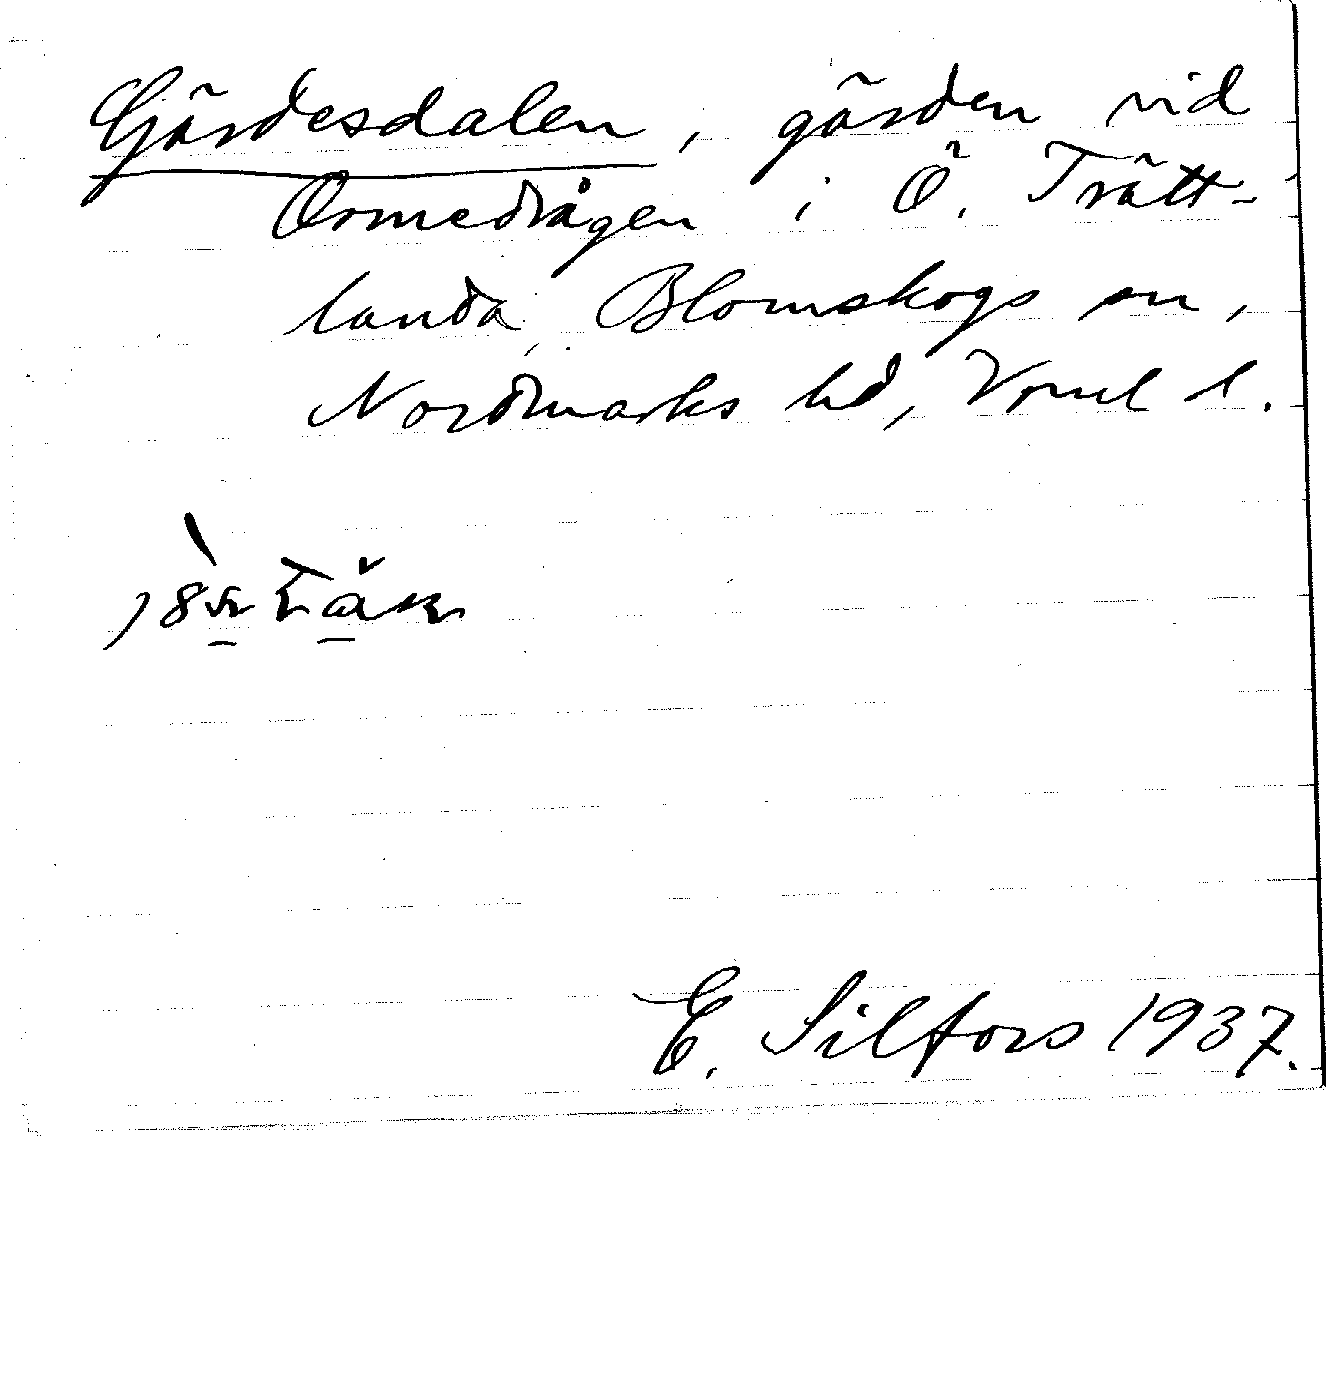 Gärdesdalen, gärden vid
Ormedrågen i Ö. Trätt-
landa, Blomskogs sn,
Nordmarks hd, Vrml l.
E. Silfors 1937.